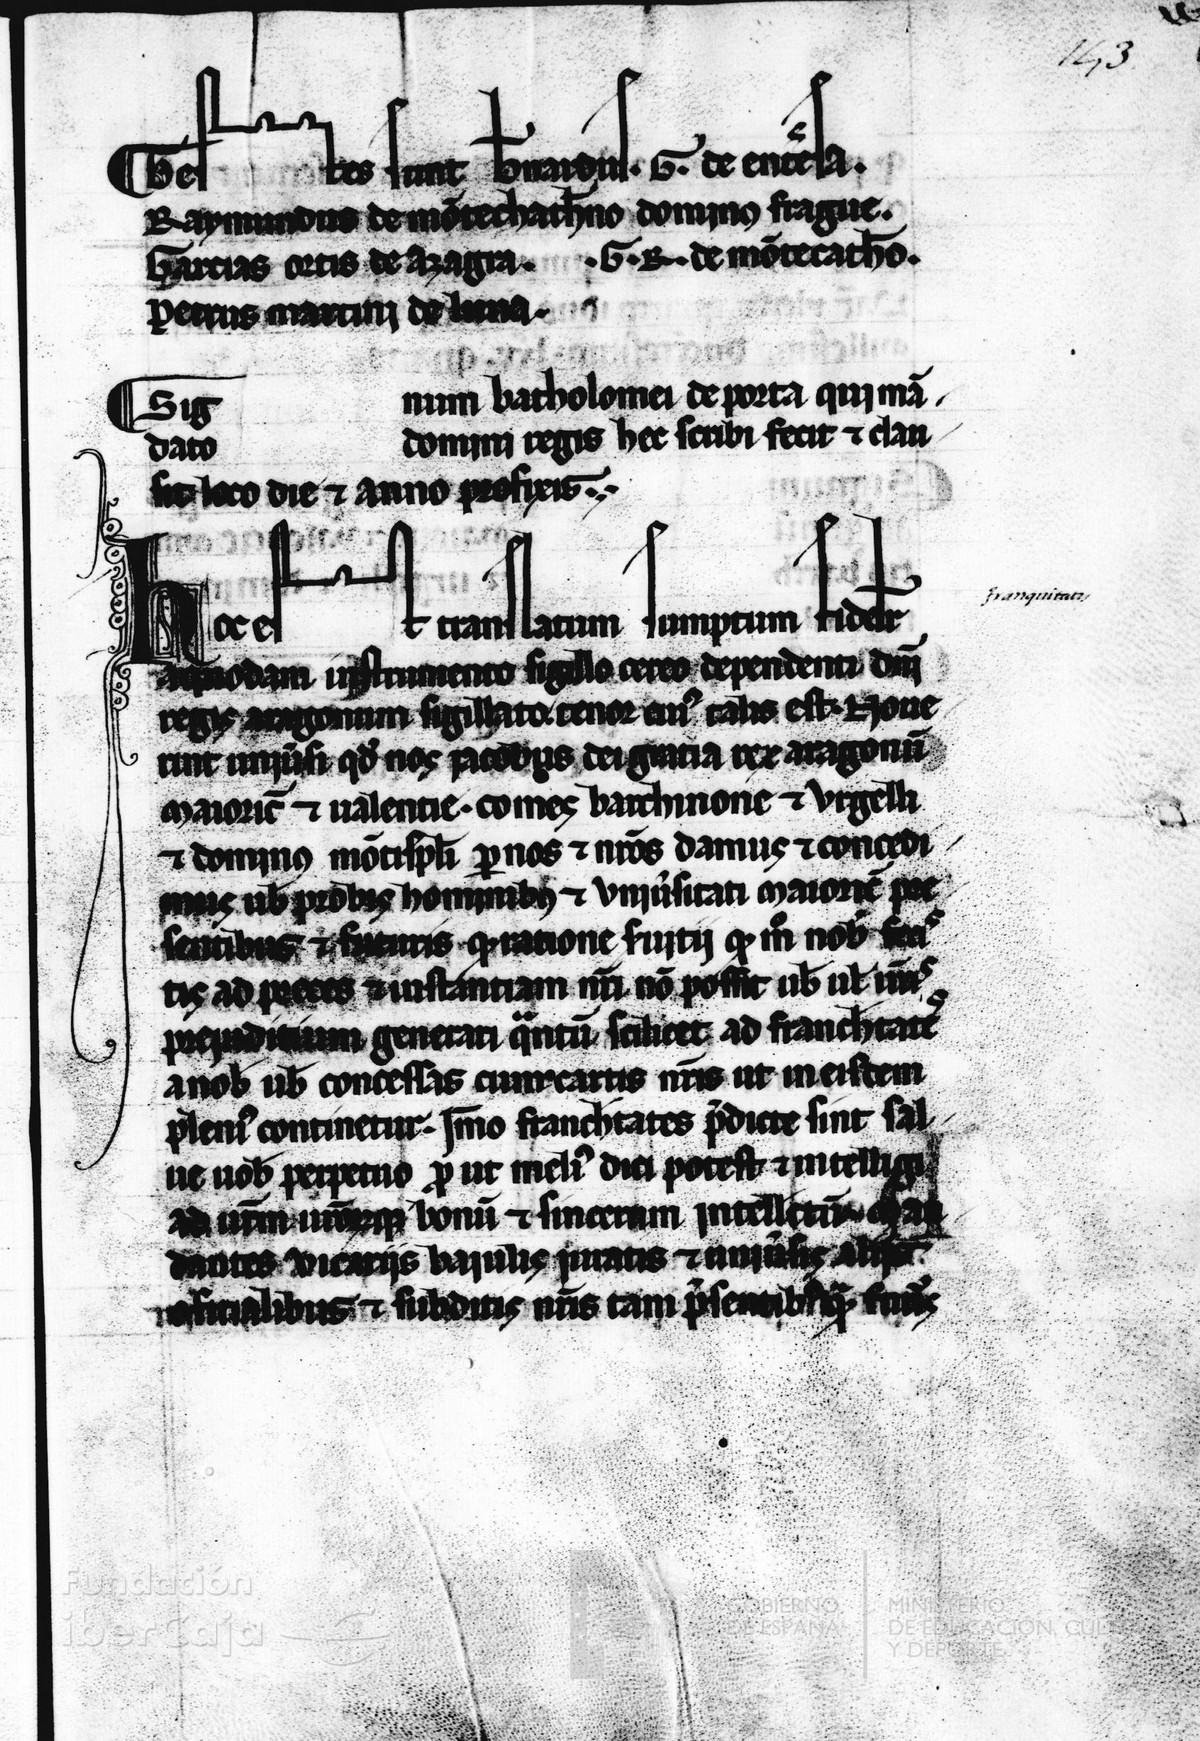 143
Testes sunt b̄nardus. G. de entēsa.
Raymundus de mōtechath̄no dominꝰ frague.
Garcias ortis de azagra. .G.R. de mōtecath̄o.
Petrus martini de luna.
Sig num bartholomei de porta qui mā
dato domini regis hec scribi fecit ⁊ clau
sit loco die ⁊ anno p̄fixis.
franquitats
Hoc est translatum sumptum fidelr̄
a quodam instrumento sigillo cereo dependenti dn̄i
regis aragonum sigillato. tenor cuiꝰ talis est. Noue
rint uniūsi qd̓ nos Iacobus dei gratia rex aragonū
maioric̄ ⁊ ualentie. comes barchinone ⁊ Vrgelli
⁊ dominꝰ mōtispl̄i ꝑ nos ⁊ nr̄os damus ⁊ concedi
mus uob̄ probis hominibꝫ ⁊ Vniūsitati maioric̄ pre
sentibus ⁊ futuris ꝙ ratione suitij ꝙ m̊ nob̄ feciſ
tis ad preces ⁊ instantiam nr̄i nō possit uob̄ ul̄ ur̄is
preiuditium generari q̄ntū scilicet ad franchitatē
a nob̄ uob̄ concessas cum cartis nr̄is ut in eisdem
pleniꝰ continetur. Immo franchitates p̄dicte sint sal
ue uob̄ perpetuo ꝓ ut meliꝰ dici potest ⁊ intelligi
ad ur̄m ur̄orumqꝫ bonū ⁊ sincerum Intellectū. Man
dantes Vicarijs baiulis iuratis ⁊ uniūsis alijs
officialibus ⁊ subditis nr̄is tam p̄sentibꝫ qꝫ futuris
Fundación
iberCaja
GOBIERNO
DE ESPAÑA
MINISTERIO
DE EDUCACIÓN, CUL
Y DEPORTE